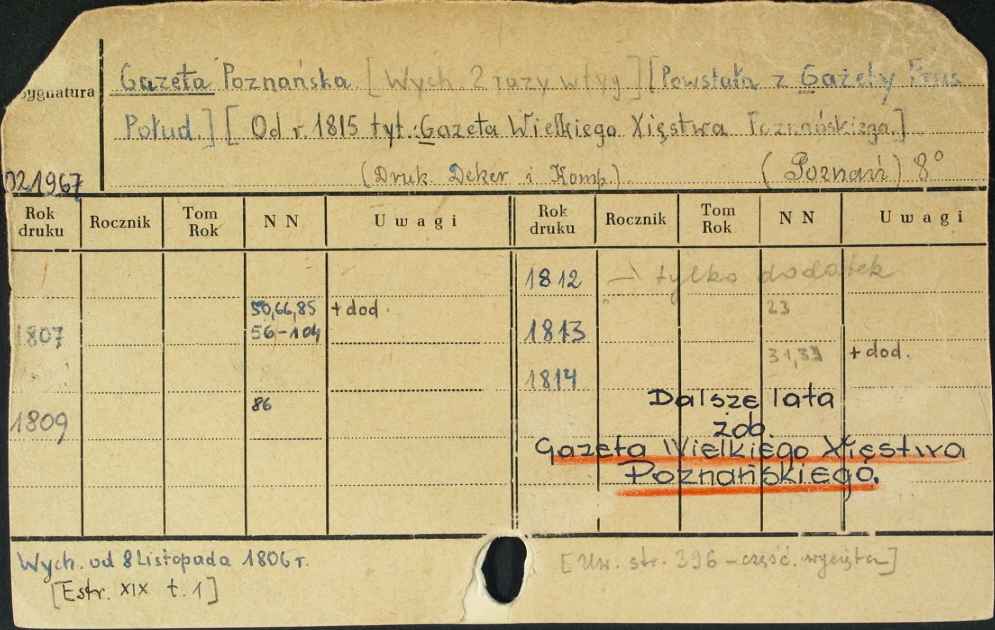 Gazeta Poznańska [Wych. 2 razy w tyg.] [Powstała z Gazety Prus
Sygnatura
Połud.] [Od r. 1815 tyt.: Gazeta Wielkiego Xięstwa Poznańskiego.]
021967
(Druk. Deker i Komp.) (Poznań) 8°
Rok druku Rocznik Tom Rok NN Uwagi Rok druku Rocznik Tom Rok NN Uwagi
1812 – tylko dodatek
50,66,85 + dod. 23
1807 56-104 1813
31,33 + dod.
1814
86 Dalsze lata
1809 zob.
Gazeta Wielkiego Xięstwa
Poznańskiego.
Wych. od 8 Listopada 1806 r. [Uw. str. 396 – część. wycięta]
[Estr. XIX t. 1]